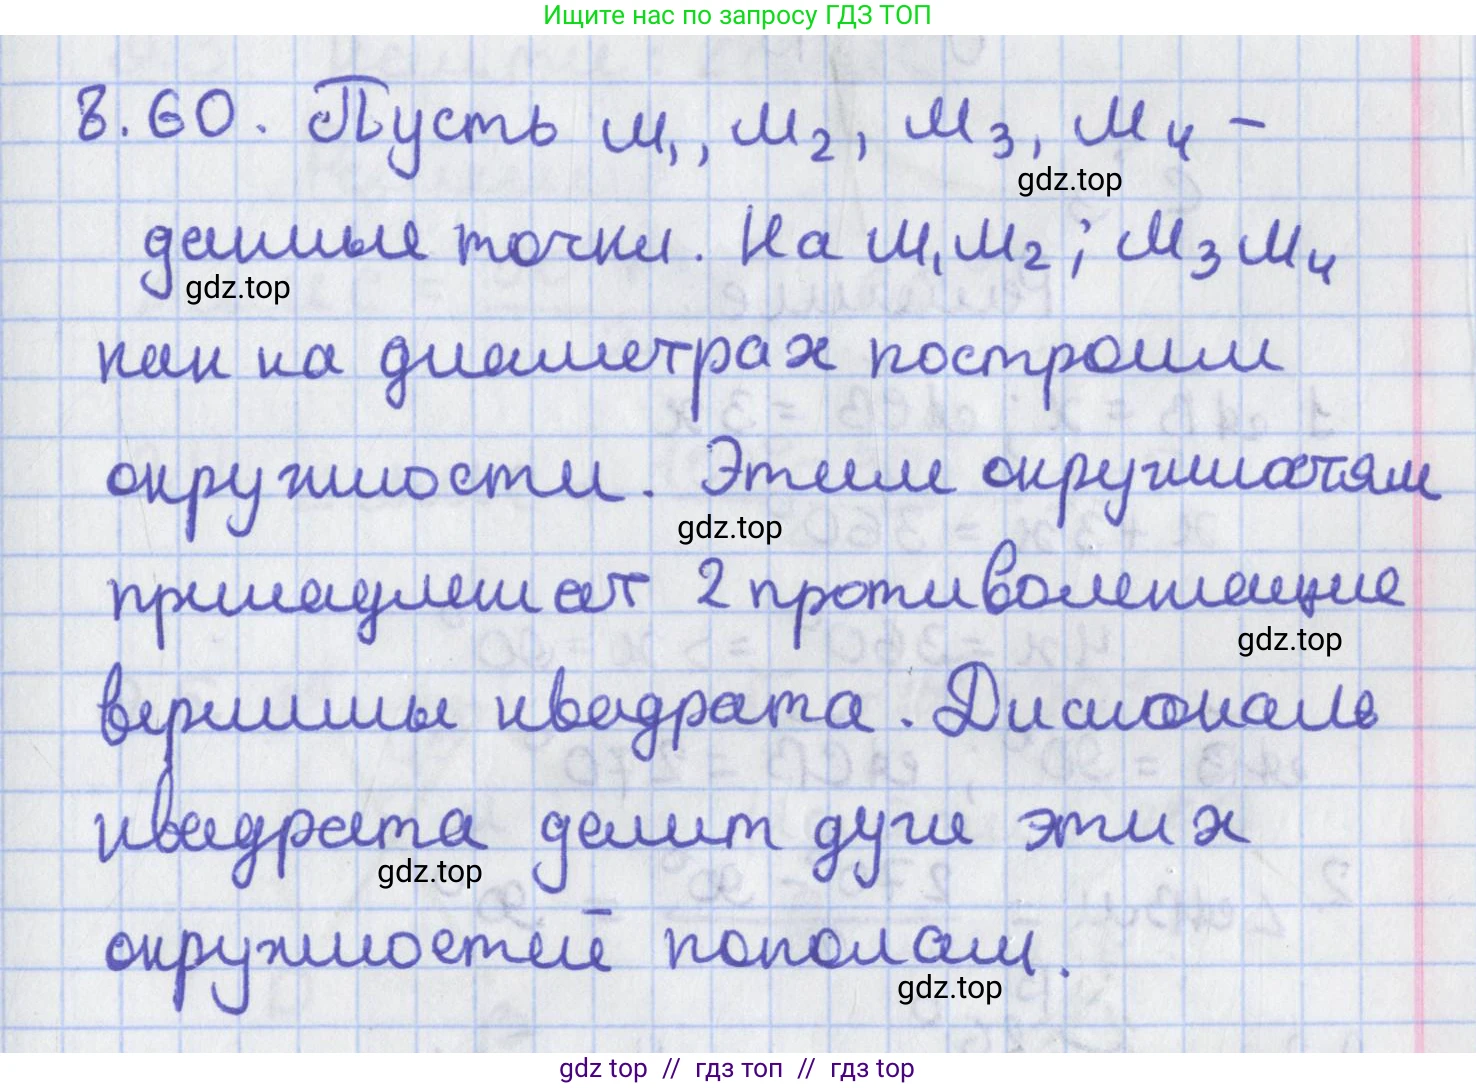 Ищите нас по запросу ГДЗ ТОП
8.60. Пусть M₁, M₂, M₃, M₄ –
gdz.top
данные точки. На M₁M₂; M₃M₄
gdz.top
как на диаметрах построим
окружности. Этим окружностям
gdz.top
принадлежат 2 противолежащие
gdz.top
вершины квадрата. Диагональ
квадрата делит дуги этих
gdz.top
окружностей пополам.
gdz.top
gdz top // гдз топ // гдз top